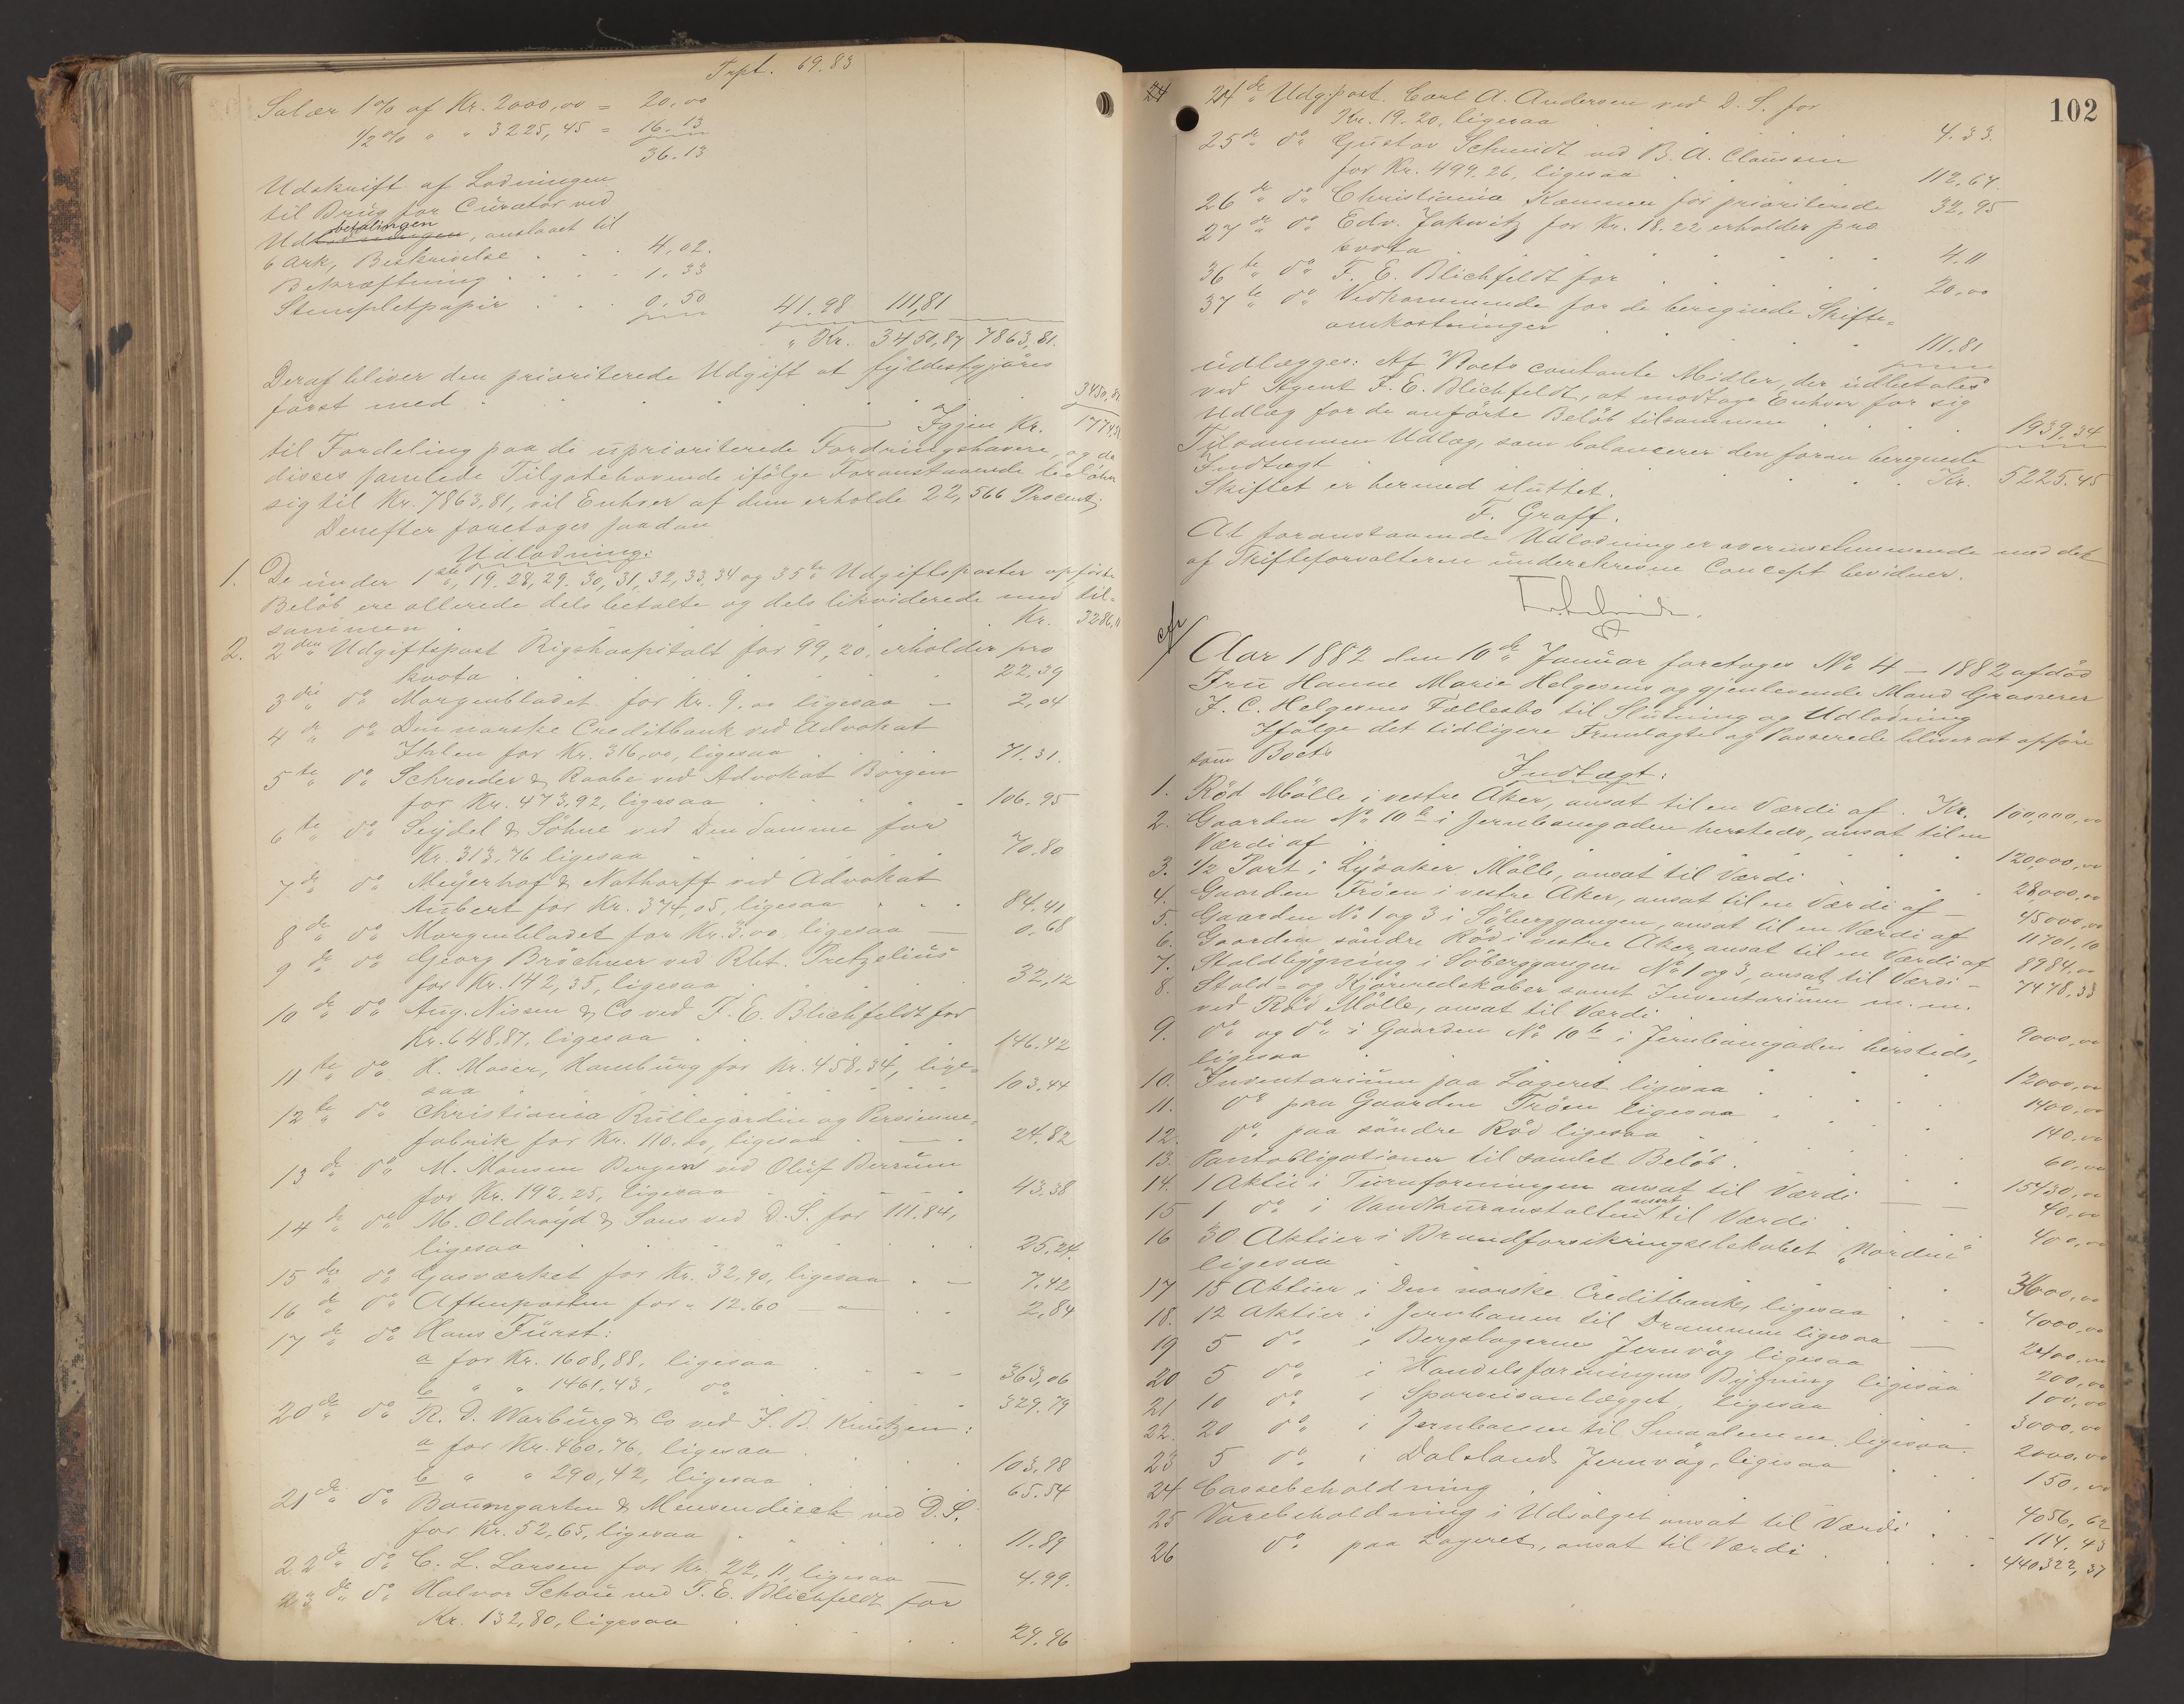 Trpt. 69.83
Salær 1% af Kr. 2000,00 = 20,00
1/2% " " 3225,45 = 16.13
36.13
Udskrift af Lodningen
til Brug for Curator ved
Udbetalingen, anslaaet til
6 Ark, Beskrivelse . . . 4,02.
Bekræftning . . . . 1.33
Stempletpapir . . . 0,50 41.98 111,81
" Kr. 3450,87 7863,81.
Deraf bliver den prioriterede Udgift at fyldestgjøres
først med . . . . . . . 3450,87
Igjen Kr. 1774,58
til Fordeling paa de uprioriterede Fordringshavere, og da
disses samlede Tilgodehavende ifølge Foranstaaende beløber
sig til Kr. 7863,81, vil Enhver af dem erholde 22,566 Procent.
Derefter foretages saadan
Udlodning:
1. De under 1ste, 19. 28, 29. 30, 31, 32, 33, 34 og 35te Udgiftsposter opførte
Beløb ere allerede dels betalte og dels likviderede med til-
sammen . . . . . . Kr. 3286,11
2. 2den Udgiftspost Rigshospitalt for 99,20, erholder pro
kvota . . . . . . 22,39
3die do Morgenbladet for Kr. 9.00 ligesaa — 2,04
4de do Den norske Creditbank ved Advokat
Ihlen for Kr. 316,00, ligesaa . . . 71.31.
5te do Schroeder & Raabe ved Advokat Borgen
for Kr. 473,92, ligesaa . . . . 106.95
6te do Seydel & Söhne ved Den Samme for
Kr. 313,76 ligesaa . . . . 70.80
7de do Meyerhof & Nathorff ved Advokat
Aubert for Kr. 374,05, ligesaa . . . 84.41
8de do Morgenbladet for Kr. 3,00 ligesaa — 0.68
9de do Georg Bröchner ved Rht. Pretzelius
for Kr. 142,35, ligesaa . . . 32,12
10de do Aug. Nissen & Co ved F. E. Blichfeldt for
Kr. 648.87, ligesaa . . . . 146.42
11te do H. Moser, Hamburg for Kr. 458,34, lige-
saa . . . . . . 103,44
12te do Christiania Rullegardin og Persienne-
fabrik for Kr. 110.00, ligesaa . . . 24.82
13de do M. Monsen Bergen ved Oluf Berrum
for Kr. 192.25, ligesaa . . . 43.38
14de do M. Oldroyd & Sons ved D. S. for 111.84,
ligesaa . . . . . . 25.24.
15de do Gasværket for Kr. 32,90, ligesaa . — 7.42
16de do Aftenposten for " 12.60 — " — . . 2,84
17de do Hans Fürst:
a for Kr. 1608,88, ligesaa . . . 363,06
b " " 1461.43, do . . . 329.79
20de do R. D. Warburg & Co ved F. B. Knutzen:
a for Kr. 460,76, ligesaa . . . 103,98
b " " 290,42, ligesaa . . . 65.54
21de do Baumgarten & Mensendieck ved D. S.
for Kr. 52,65, ligesaa . . . . 11.89
22de do C. L. Larsen for Kr. 22,11, ligesaa — 4.99.
23de do Halvor Schou ved F. E. Blichfeldt for
Kr. 132,80, ligesaa . . . . 29.96
102
24de Udg.post. Carl A. Andersen ved D. S. for
Kr. 19.20, ligesaa . . . . 4.33.
25de do Gustav Schmidt ved B. A. Claussen
for Kr. 499.26, ligesaa . . . . 112,67.
26de do Christiania Kæmner for prioriterede 32,95
27de do Edv. Jakwitz for Kr. 18.22 erholder pro
kvota . . . . . . 4.11
36te do F. E. Blichfeldt for . . . . 20,00
37te do Vedkommende for de beregnede Skifte-
omkostninger . . . . . 111.81
udlægges: Af Boets contante Midler, der udbetales
ved Agent F. E. Blichfeldt, at modtage Enhver for sig
Udlæg for de anførte Beløb tilsammen . . . 1939,34
Tilsammen Udlæg, som balancerer den foran beregnede
Indtægt . . . . . . Kr. 5225.45
Skiftet er hermed sluttet.
F. Graff.
At foranstaaende Udlodning er overensstemmende med det
af Skifteforvalteren underskrevne Concept bevidner.
cfr
Aar 1882 den 10de Januar foretages No 4 – 1882 afdød
Fru Hanne Marie Helgesens og gjenlevende Mand Grosserer
F. C. Helgesens Fællesbo til Slutning og Udlodning
Ifølge det tidligere Fremlagte og Passerede bliver at opføre
som Boets
Indtægt:
1. Röd Mölle i vestre Aker, ansat til en Værdi af . Kr. 100,000,00
2. Gaarden No 10b i Jernbanegaden hersteds, ansat til en
Værdi af . . . . . . 120,000,00
3. 1/2 Part i Lysaker Mölle, ansat til Værdi . . . 28,000,00
4. Gaarden Tröen i vestre Aker, ansat til en Værdi af — 45000,00
5. Gaarden No 1 og 3 i Söberggangen, ansat til en Værdi af 11701,10
6. Gaarden söndre Röd i vestre Aker, ansat til en Værdi af 8984,00
7. Staldbygning i Söberggangen No 1 og 3, ansat til Værdi — 7478,33
8. Stald- og Kjöreredskaber samt Inventarium m. m.
ved Röd Mölle, ansat til Værdi . . . 9000,00
9. do og do i Gaarden No 10b i Jernbanegaden hersteds,
ligesaa . . . . . . 12000,00
10. Inventarium paa Lageret ligesaa . . . 1400,00
11. do paa Gaarden Tröen ligesaa . . . 140,00
12. do paa söndre Röd ligesaa . . . 60,00
13. Pantobligationer til samlet Beløb . . . 15430,00
14. 1 Aktie i Turnforeningen ansat til Værdi — 40,00
15 1 do i Vandkuranstalten ansat til Værdi . . 400,00
16 30 Aktier i Brandforsikringselskabet „Norden“
ligesaa . . . . . . 3600,00
17 15 Aktier i Den norske Creditbank, ligesaa . . 4000,00
18. 12 Aktier i Jernbanen til Drammen ligesaa — 2400,00
19 5 do i Bergslagernes Jernväg ligesaa . . 200,00
20 5 do i Handelsforeningens Bygning ligesaa 100,00
21 10 do i Sparnisanlægget, ligesaa . . 3000,00
22. 20 do i Jernbanen til Smaalenene ligesaa . 2000,00
23 5 do i Dalslands Jernväg, ligesaa . . 150,00
24 Cassebeholdning . . . . . 4056,62
25 Varebeholdning i Udsalget ansat til Værdi . . 114.43
26 do paa Lageret, ansat til Værdi . . . 440322,37